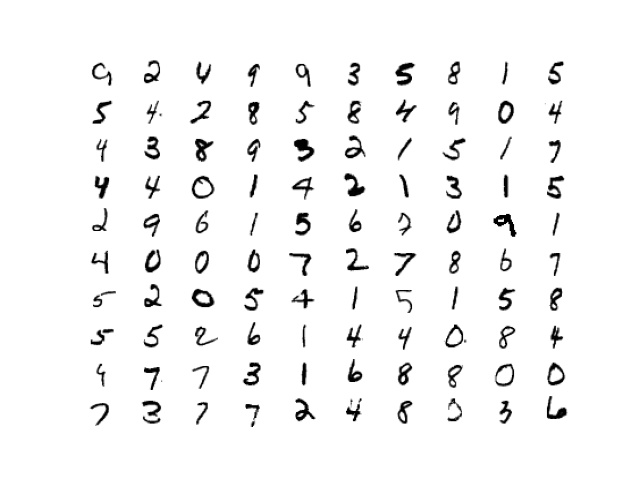 9 2 4 9 9 3 5 8 1 5
5 4 2 8 5 8 4 9 0 4
4 3 8 9 3 2 1 5 1 7
4 4 0 1 4 2 1 3 1 5
2 9 6 1 5 6 7 0 9 1
4 0 0 0 7 2 7 8 6 7
5 2 0 5 4 1 5 1 5 8
5 5 2 6 1 4 4 0 8 4
9 7 7 3 1 6 8 8 0 0
7 3 7 7 2 4 8 0 3 6